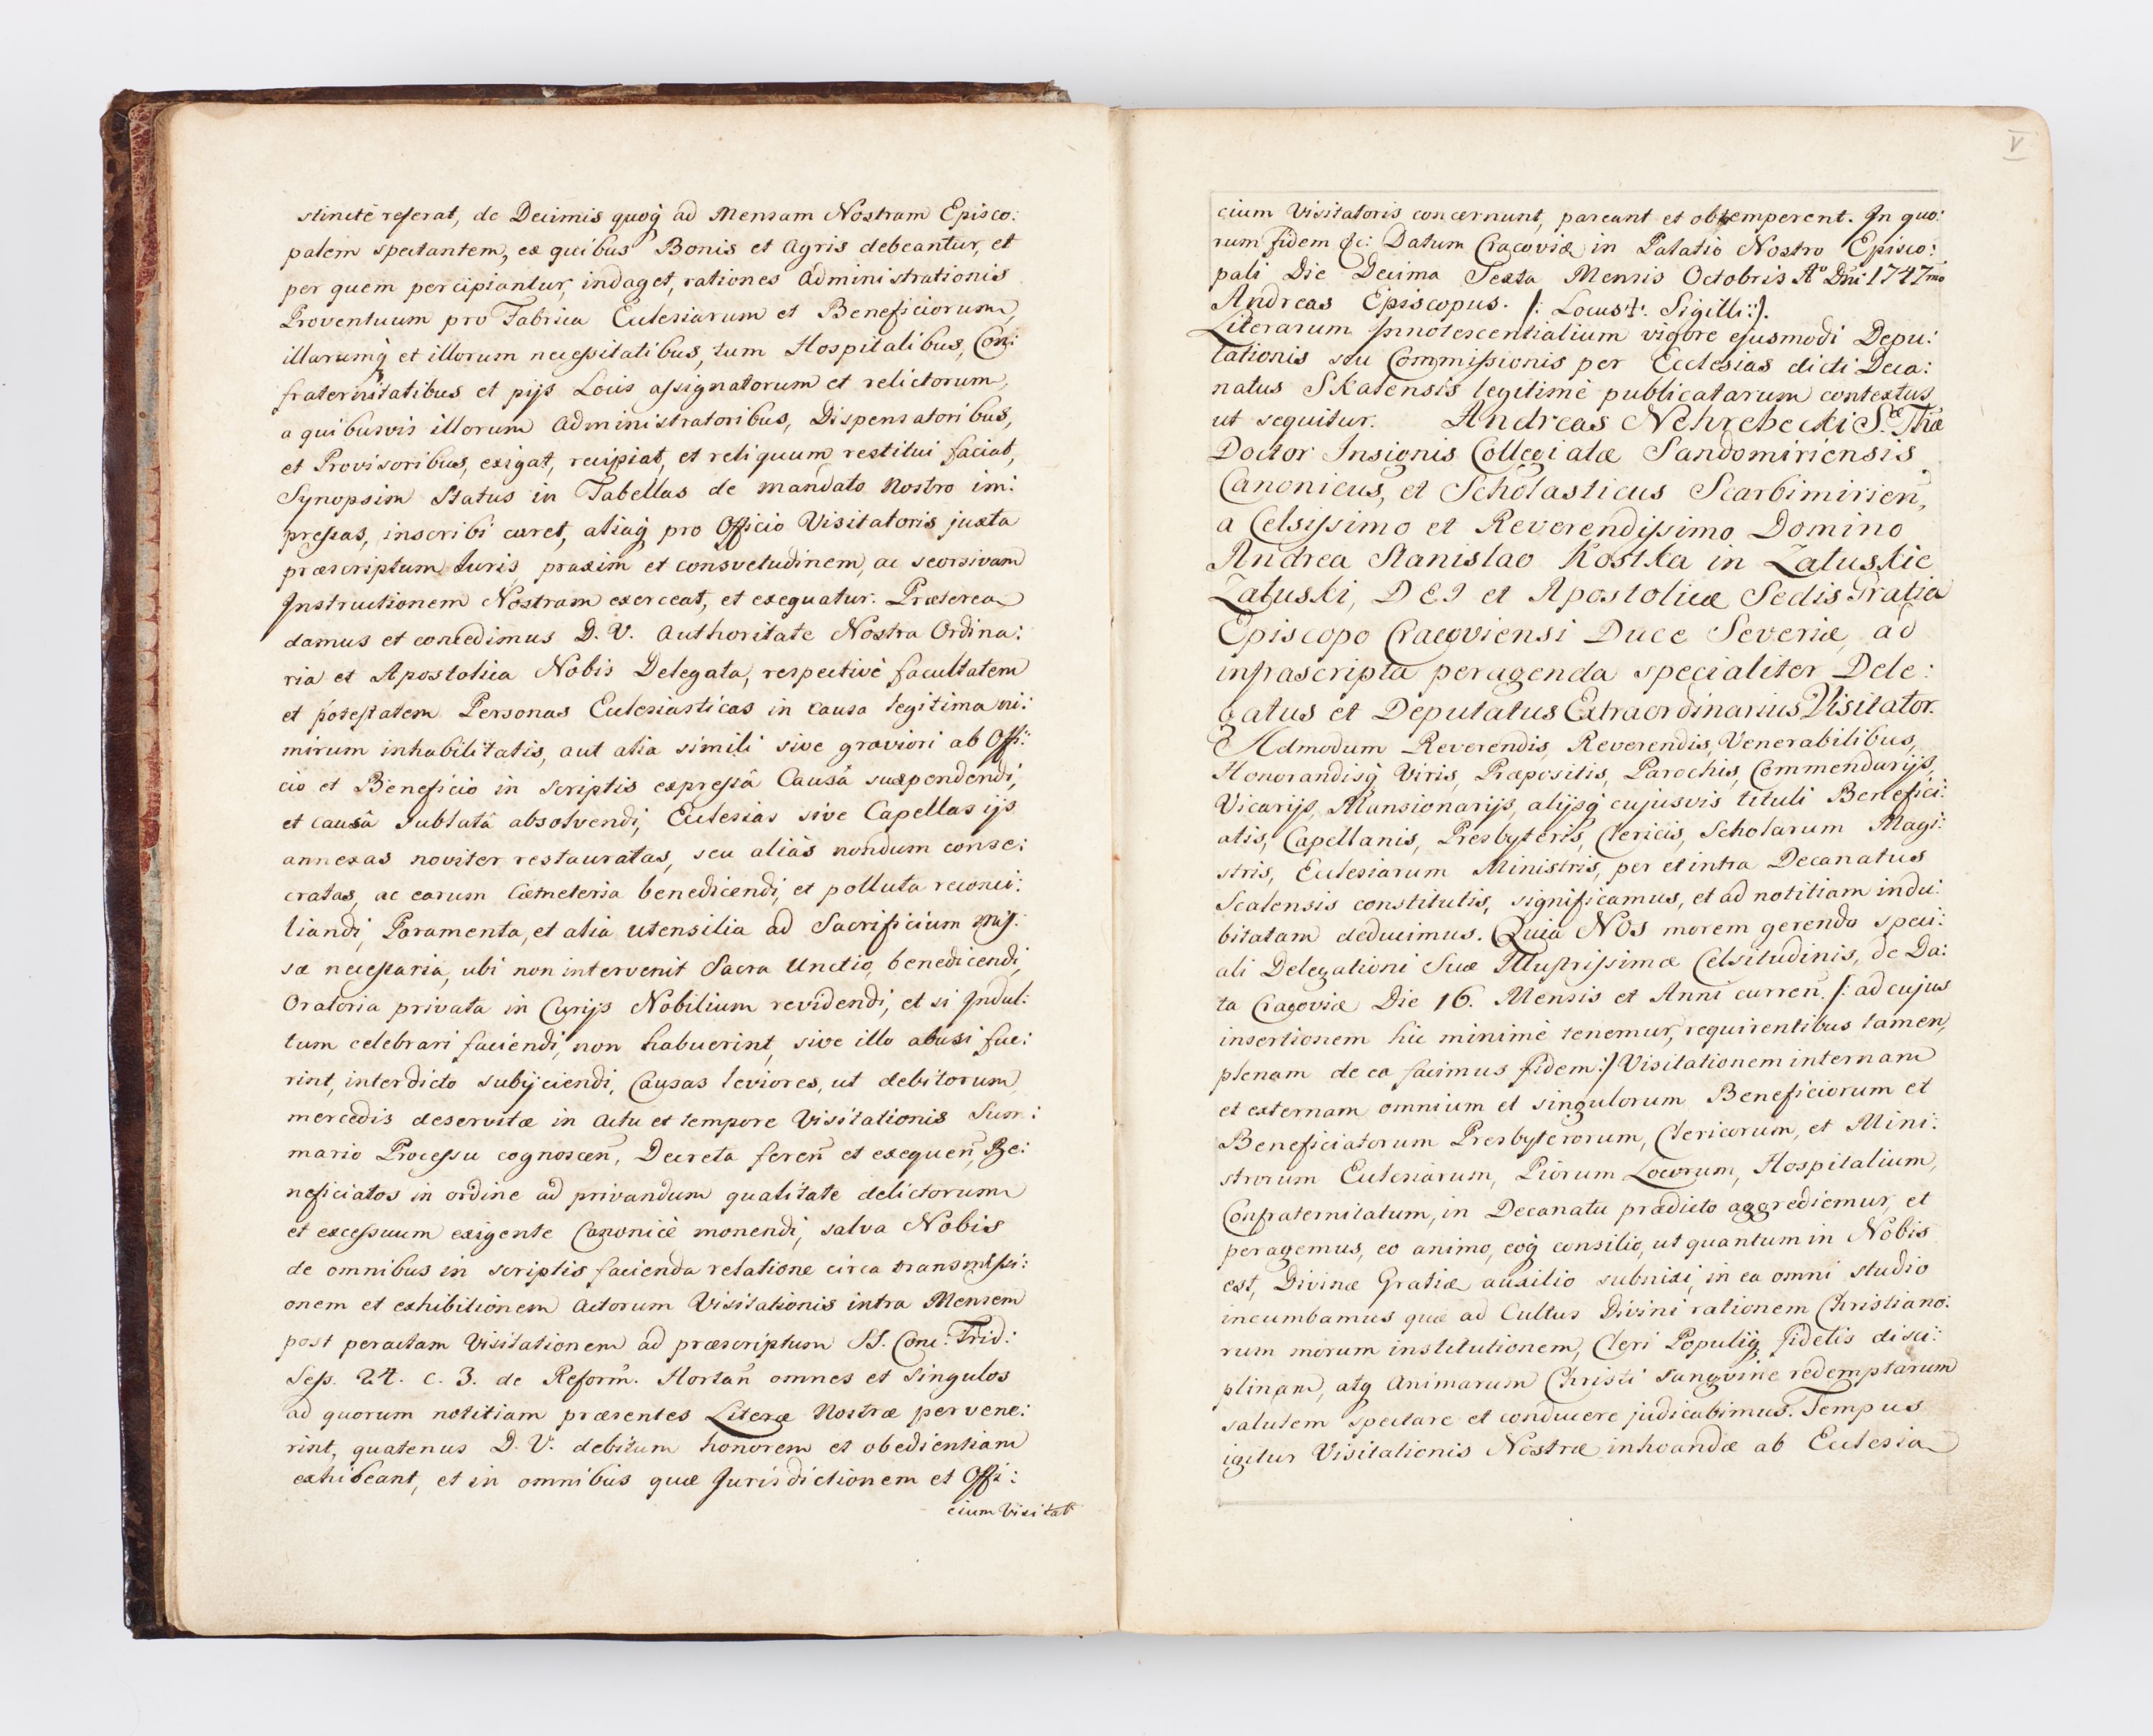 stincte referat, de Decimis quoq́ ad Mensam Nostram Episco:
palem spectantem, ex quibus Bonis et Agris debeantur, et
per quem percipiantur, indaget, rationes Administrationis
Proventuum pro Fabrica Ecclesiarum et Beneficiorum,
illarumq́ et illorum necessitatibus, tum Hospitalibus, Con:
fraternitatibus et pijs Locis assignatorum et relictorum,
a quibusvis illorum Administratoribus, Dispensatoribus,
et Provisoribus, exigat, recipiat, et reliquum restitui faciat,
Synopsim Status in Tabellas de mandato Nostro im:
pressas, inscribi curet, aliaq́ pro Officio Visitatoris juxta
præscriptum Iuris, praxim et consvetudinem, ac seorsivam
Instructionem Nostram exerceat, et exequatur. Præterea
damus et concedimus D. V. Authoritate Nostra Ordina:
ria et Apostolica Nobis Delegata, respectivè facultatem
et potestatem Personas Ecclesiasticas in causa legitima ni:
mirum inhabilitatis, aut alia simili sive graviori ab Offi:
cio et Beneficio in scriptis expressâ Causâ suspendendi,
et causâ sublatâ absolvendi, Ecclesias sive Capellas ijs
annexas noviter restauratas, seu aliàs nondum conse:
cratas, ac earum Cæmeteria benedicendi, et polluta reconci:
liandi, Paramenta, et alia utensilia ad Sacrificium Mis:
sæ necessaria, ubi non intervenit Sacra Unctio, benedicendi,
Oratoria privata in Curijs Nobilium revidendi, et si Indul:
tum celebrari faciendi, non habuerint, sive illo abusi fue:
rint, interdicto subijciendi, Causas leviores, ut debitorum,
mercedis deservitæ in actu et tempore Visitationis Sum:
mario Processu cognoscen̄, Decreta feren̄ et exequen̄, Be:
neficiatos in ordine ad privandum qualitate delictorum
et excessuum exigente Canonicè monendi, salva Nobis
de omnibus in scriptis facienda relatione circa transmissi:
onem et exhibitionem Actorum Visitationis intra Mensem
post peractam Visitationem ad præscriptum SS. Conc: Trid:
Sess. 24. c. 3. de Reform̄. Hortan̄ omnes et singulos
ad quorum notitiam præsentes Literæ Nostræ pervene:
rint, quatenus D. V. debitum honorem et obedientiam
exhibeant, et in omnibus quæ Jurisdictionem et Offi:
cium Visitat
V
cium Visitatoris concernunt, pareant et obtemperent. In quo:
rum fidem &c: Datum Cracoviæ in Palatio Nostro Episco:
pali Die Decima Sexta Mensis Octobris Aº Dni 1747mo
Andreas Episcopus. /: Locus †. Sigilli :/.
Literarum Innotescentialium vigore ejusmodi Depu:
tationis seu Commissionis per Ecclesias dicti Deca:
natus Skalensis legitimè publicatarum contextus,
ut sequitur. Andreas Nehrebecki S. Thæ
Doctor Insignis Collegiatæ Sandomiriensis
Canonicus, et Scholasticus Scarbimirien̄,
a Celsissimo et Reverendissimo Domino
Andrea Stanislao Kostka in Załuskie
Załuski, DEI et Apostolicæ Sedis Gratia
Episcopo Cracoviensi Duce Severiæ, ad
infrascripta peragenda specialiter Dele:
gatus et Deputatus Extraordinarius Visitator.
Admodum Reverendis, Reverendis, Venerabilibus,
Honorandisq́ Viris, Præpositis, Parochis, Commendarijs,
Vicarijs, Mansionarijs, alijsq́ cujusvis tituli Benefici:
atis, Capellanis, Presbyteris, Clericis, Scholarum Magi:
stris, Ecclesiarum Ministris, per et intra Decanatus
Scalensis constitutis, significamus, et ad notitiam indu:
bitatam deducimus. Quia NOS morem gerendo speci:
ali Delegationi Suæ Illustrissimæ Celsitudinis, de Da:
ta Cracoviæ Die 16. Mensis et Anni curren̄. /: ad cujus
insertionem hic minimè tenemur, requirentibus tamen,
plenam de ea facimus fidem :/ Visitationem internam
et externam omnium et singulorum Beneficiorum et
Beneficiatorum Presbyterorum, Clericorum, et Mini:
strorum Ecclesiarum, Piorum Locorum, Hospitalium,
Confraternitatum, in Decanatu prædicto aggrediemur, et
peragemus, eo animo, eoq́ consilio, ut quantum in Nobis
est, Divinæ Gratiæ auxilio subnixi, in ea omni studio
incumbamus quæ ad Cultus Divini rationem Christiano:
rum morum institutionem, Cleri Populiq́ fidelis disci:
plinam, atq́ Animarum Christi sangvine redemptarum
salutem spectare et conducere judicabimus. Tempus
igitur Visitationis Nostræ inchoandæ ab Ecclesia